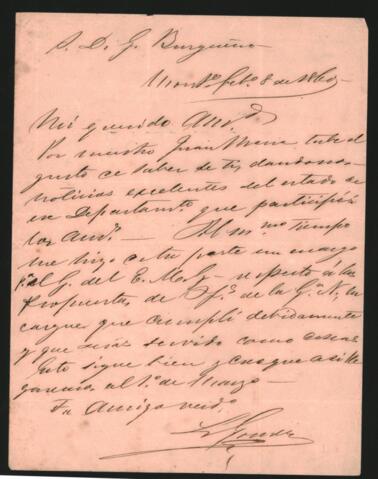 S. D. G. Burgueño
Montº. Feb.º 8 de 186
Mi querido Am.º
Por nuestro Juan tube el
gusto de saber de ti, dandonos
noticias excelentes del estado de
ese Departamtº que participé á
los am.s — Al mmo tiempo
me hizo á tu parte un encargo
pª el G. del E. M. G. respecto á las
Propuestas de Of.s de la Gª N. en
cargue que cumplí debidamente
y que serás servido como deseas
Esto sigue bien y creo que asi lle
garemos al 1.º de Marzo —
Tu amigo